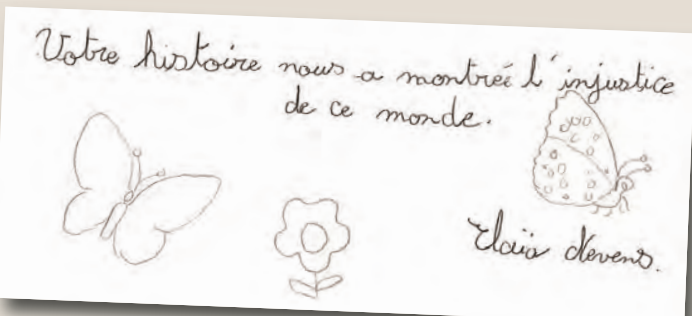 Votre histoire nous a montreé l'injustice
de ce monde.
Elaïa Devens.